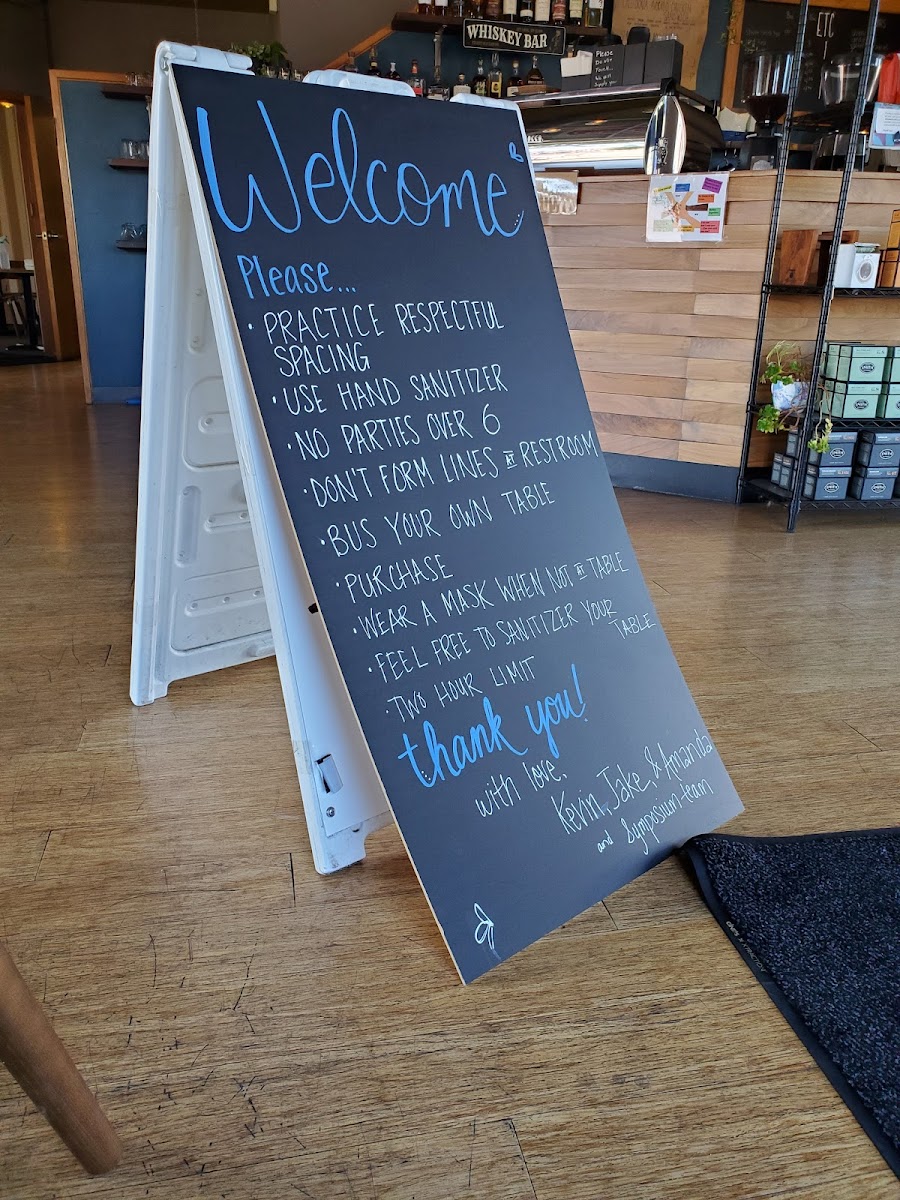 WHISKEY BAR
ETC
Welcome
Please...
• PRACTICE RESPECTFUL
SPACING
• USE HAND SANITIZER
• NO PARTIES OVER 6
• DON'T FORM LINES AT RESTROOM
• BUS YOUR OWN TABLE
• PURCHASE
• WEAR A MASK WHEN NOT AT TABLE
• FEEL FREE TO SANITIZER YOUR
TABLE
• TWO HOUR LIMIT
thank you!
with love,
Kevin, Jake, & Amanda
and Symposium team